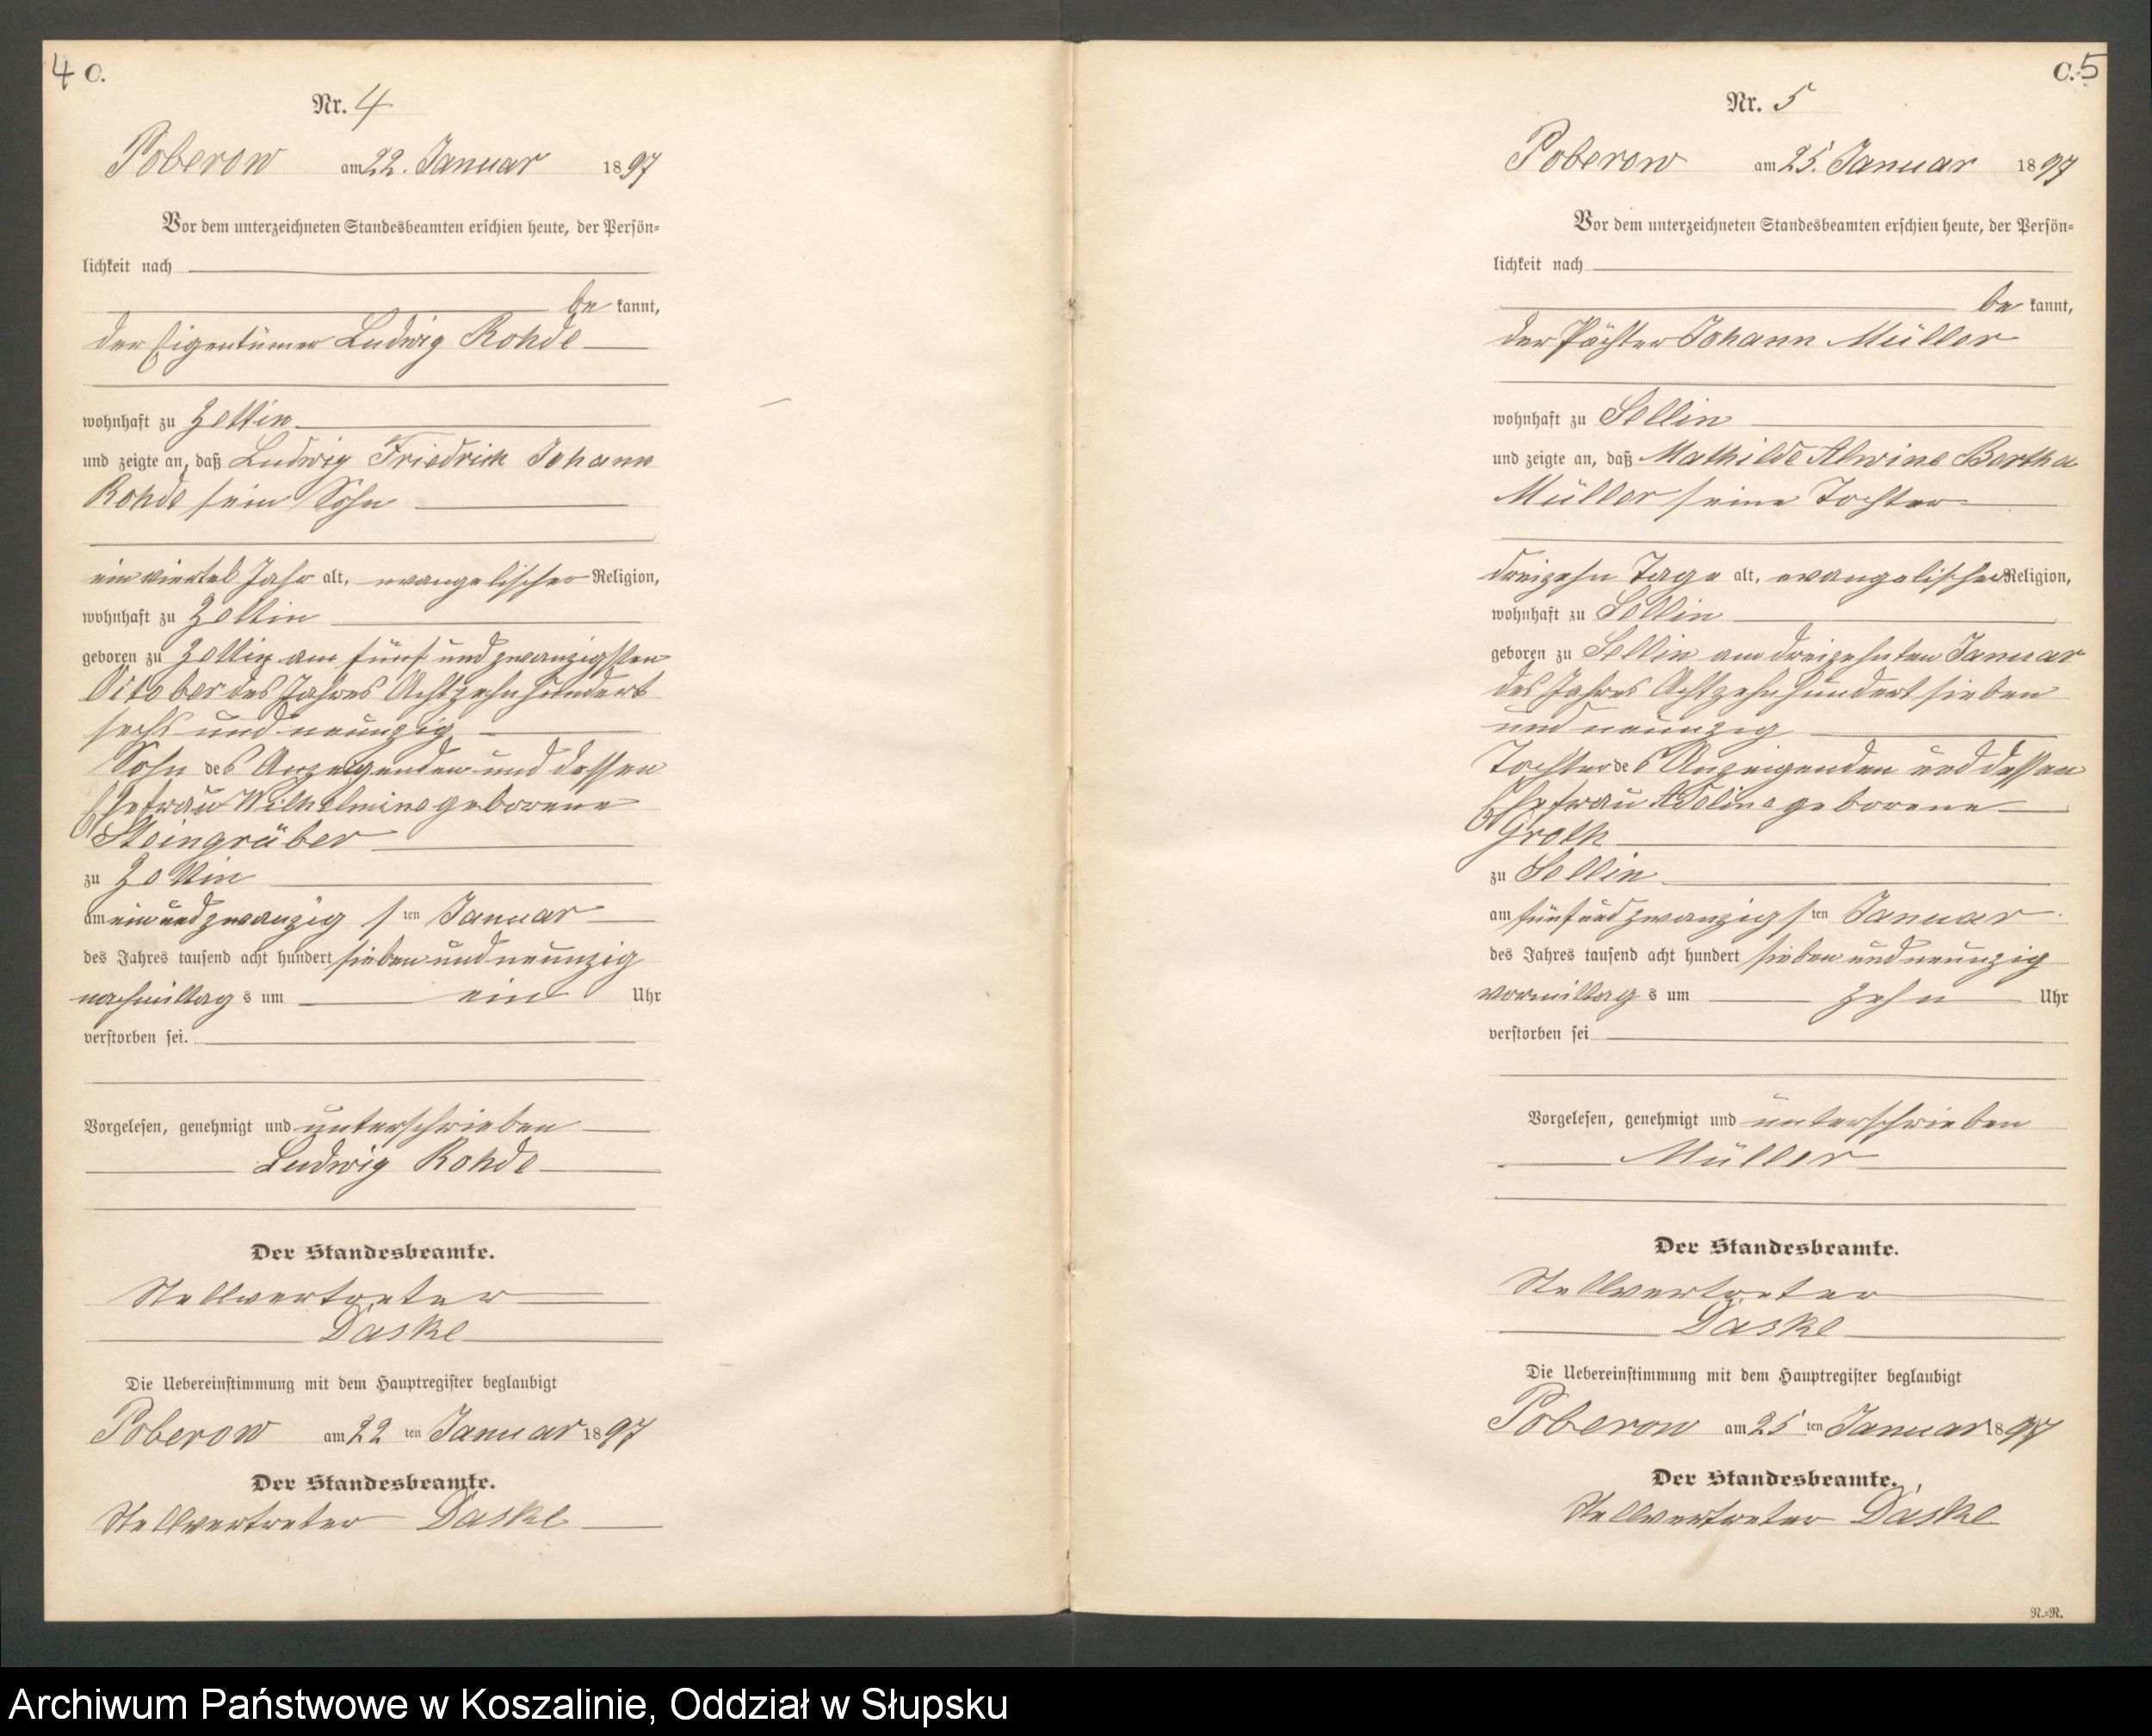 4 C.
Nr. 4
Poberow am 22. Januar 1897
Vor dem unterzeichneten Standesbeamten erschien heute, der Persön-
lichkeit nach
be kannt,
der Eigentümer Ludwig Rohde
wohnhaft zu Zettin
und zeigte an, daß Ludwig Friedrich Johann
Rohde sein Sohn
ein viertel Jahr alt, evangelischer Religion,
wohnhaft zu Zettin
geboren zu Zettin am fünf und zwanzigsten
October des Jahres Achtzehnhundert
sechs und neunzig
Sohn des Anzeigenden und dessen
Ehefrau Wilhelmine geborene
Steingräber
zu Zettin
am ein und zwanzig sten Januar
des Jahres tausend acht hundert sieben und neunzig
nachmittag s um ein Uhr
verstorben sei.
Vorgelesen, genehmigt und unterschrieben
Ludwig Rohde
Der Standesbeamte.
Stellvertreter
Daske
Die Uebereinstimmung mit dem Hauptregister beglaubigt
Poberow am 22 ten Januar 1897
Der Standesbeamte.
Stellvertreter Daske
C. 5
Nr. 5
Poberow am 25. Januar 1897
Vor dem unterzeichneten Standesbeamten erschien heute, der Persön-
lichkeit nach
be kannt,
der Pächter Johann Müller
wohnhaft zu Sellin
und zeigte an, daß Mathilde Alwine Bertha
Müller seine Tochter
dreizehn Tage alt, evangelischer Religion,
wohnhaft zu Sellin
geboren zu Sellin am dreizehnten Januar
des Jahres Achtzehnhundert sieben
und neunzig
Tochter des Anzeigenden und dessen
Ehefrau Adeline geborene
Groth
zu Sellin
am fünf und zwanzig sten Januar
des Jahres tausend acht hundert sieben und neunzig
vormittag s um zehn Uhr
verstorben sei
Vorgelesen, genehmigt und unterschrieben
Müller
Der Standesbeamte.
Stellvertreter
Daske
Die Uebereinstimmung mit dem Hauptregister beglaubigt
Poberow am 25 ten Januar 1897
Der Standesbeamte.
Stellvertreter Daske
N.=N.
Archiwum Państwowe w Koszalinie, Oddział w Słupsku